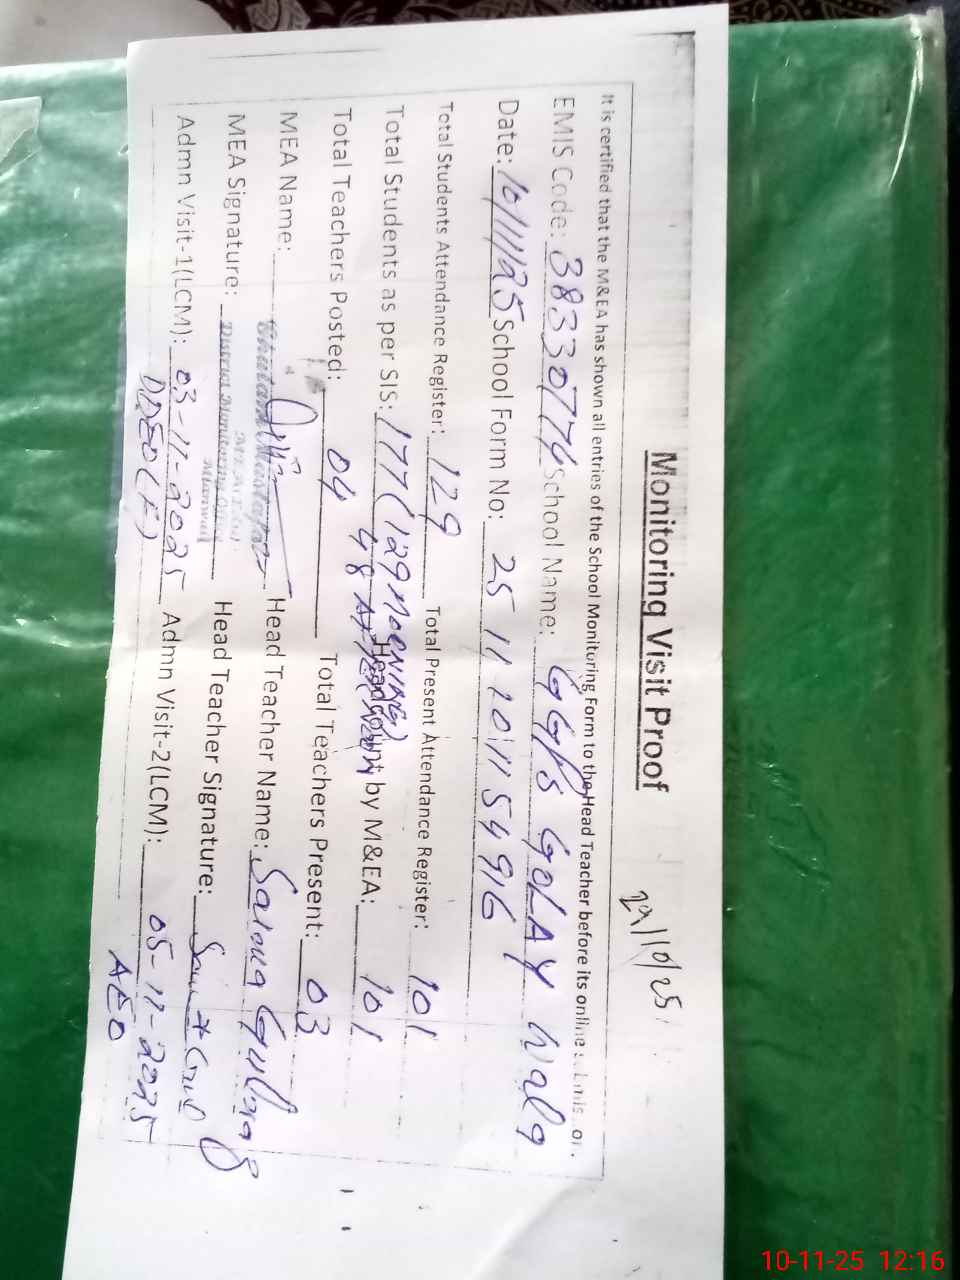 Monitoring Visit Proof
29/10/25
It is certified that the M&EA has shown all entries of the School Monitoring Form to the Head Teacher before its online
EMIS Code: 38330774 School Name: GGPS GOLAY Wala
Date: 10/11/25 School Form No: 25 11 10 11 54 916
Total Students Attendance Register: 129 Total Present Attendance Register: 101
Total Students as per SIS: 177 (129 MOONING) Headcount by M&EA: 101
48
Total Teachers Posted: 04 Total Teachers Present: 03
MEA Name: Head Teacher Name:
MEA Signature: Head Teacher Signature:
District Monitoring
Mianwali
Admn Visit-1(LCM): 03-11-2025 Admn Visit-2(LCM): 05-11-2025
AEO
10-11-25 12:16